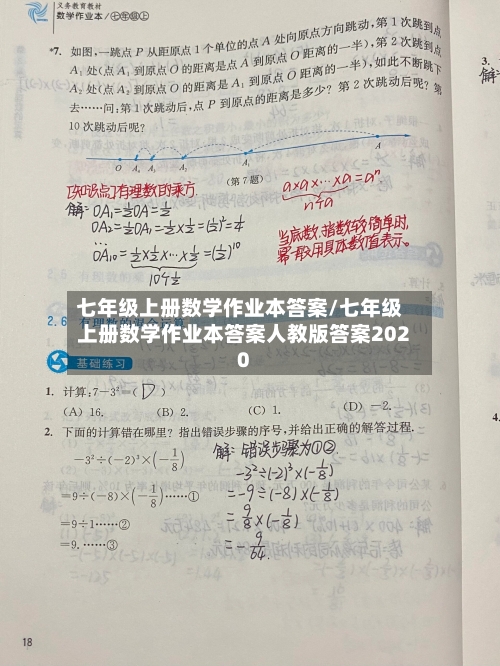 义务教育教材
数学作业本/七年级上
*7. 如图,一跳点 P 从距原点 1 个单位的点 A 处向原点方向跳动,第 1 次跳到点
A₁ 处(点 A₁ 到原点 O 的距离是点 A 到原点 O 距离的一半),第 2 次跳到点
A₂ 处(点 A₂ 到原点 O 的距离是 A₁ 到原点 O 距离的一半),如此不断跳下
去……问:第 1 次跳动后,点 P 到原点的距离是多少?第 2 次跳动后呢?第
10 次跳动后呢?
O A₄ A₃ A₂ A₁ A
(第 7 题)
[知识点]有理数的乘方.
解:OA₁=½OA=½
OA₂=½OA₁=½×½=(½)²=¼
…
OA₁₀=½×½×…×½=(½)¹⁰
10个½
a×a×…×a=aⁿ
n个a
当底数,指数较简单时,
需要用具体数值表示。
3.
解
七年级上册数学作业本答案/七年级
上册数学作业本答案人教版答案202
0
2.6
基础练习
1. 计算:7-3²=( D )
(A) 16. (B) 2. (C) 1. (D) -2.
2. 下面的计算错在哪里?指出错误步骤的序号,并给出正确的解答过程.
-3²÷(-2)³×(-1/8)
=9÷(-8)×(-1/8)……①
=9÷1……②
=9. ……③
解:错误步骤为①②.
-3²÷(-2)³×(-1/8)
=-9÷(-8)×(-1/8)
=9/8×(-1/8)
=-9/64.
4.
18